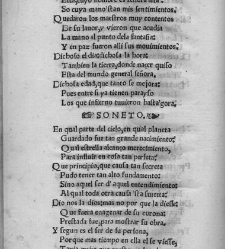 So cuya mano estan mis sentimientos.
Quedaron los maestros muy contentos
De su lauor, y vieron que acudia
La mano al punto dela fantasia:
Y en paz fueron alli sus mouimientos.
Dichoso el dia, dichosa la hora:
Tambien la tierra, donde nacer quiso
Esta del mundo general señora,
Dichosa edad, que tanto se mejora:
Pues entre si ya tienen parayso
Los que infierno tuuieron hasta gora.
SONETO.
En qual parte del cielo, en qual planeta
Guardado fue tan grande nacimiento?
Qual estrella alcanço merecimiento,
Para influir en cosa tan perfeta?
Que principio, que causa tan secreta
Pudo tener tan alto fundamento:
Sino aquel ser d'aquel entendimiento
Al qual toda otra causa'sta sujeta.
Dio nos la dios, mas no por que la diesse:
Que fuera enagenar de su corona:
Prestada fue para mostrar su obra.
Y segun es el ser de su persona,
Porque mas tiempo en ella el se viesse,